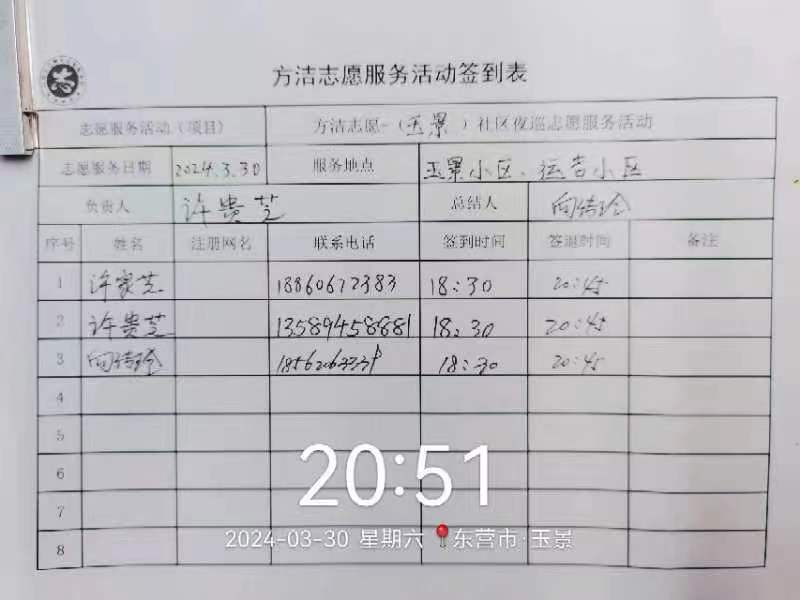 方洁志愿服务活动签到表
志愿服务活动（项目） 方洁志愿-（玉景）社区夜巡志愿服务活动
志愿服务日期 2024.3.30 服务地点 玉景小区、运吉小区
负责人 许贵芝 总结人 向绮玲
序号 姓名 注册网名 联系电话 签到时间 签退时间 备注
1 许家芝 18860672383 18:30 20:45
2 许贵芝 13589458881 18:30 20:45
3 向绮玲 18:30 20:45
4
5
6
7
8
20:51
2024-03-30 星期六 东营市·玉景